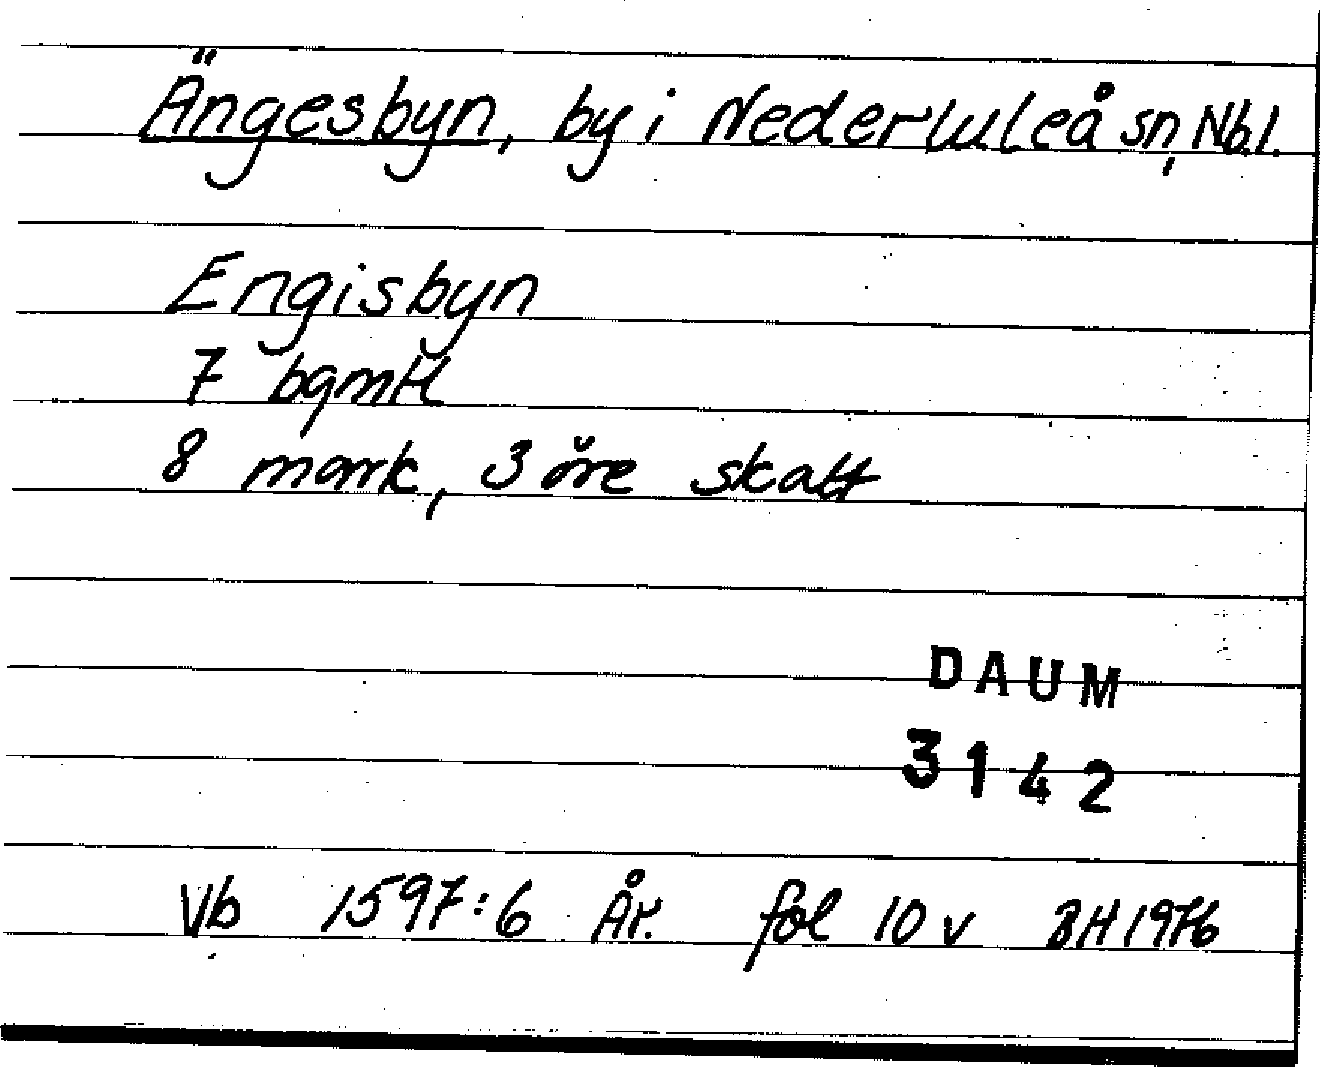 Ängesbyn, by i Nederluleå sn, Nb.l.
Engisbyn
7 bgmtl
8 mark, 3 öre skatt
DAUM
3142
Vb 1597:6 År. fol 10 v BH 1976